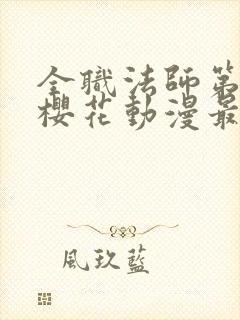 全職法師第
櫻花動漫最
風玖藍